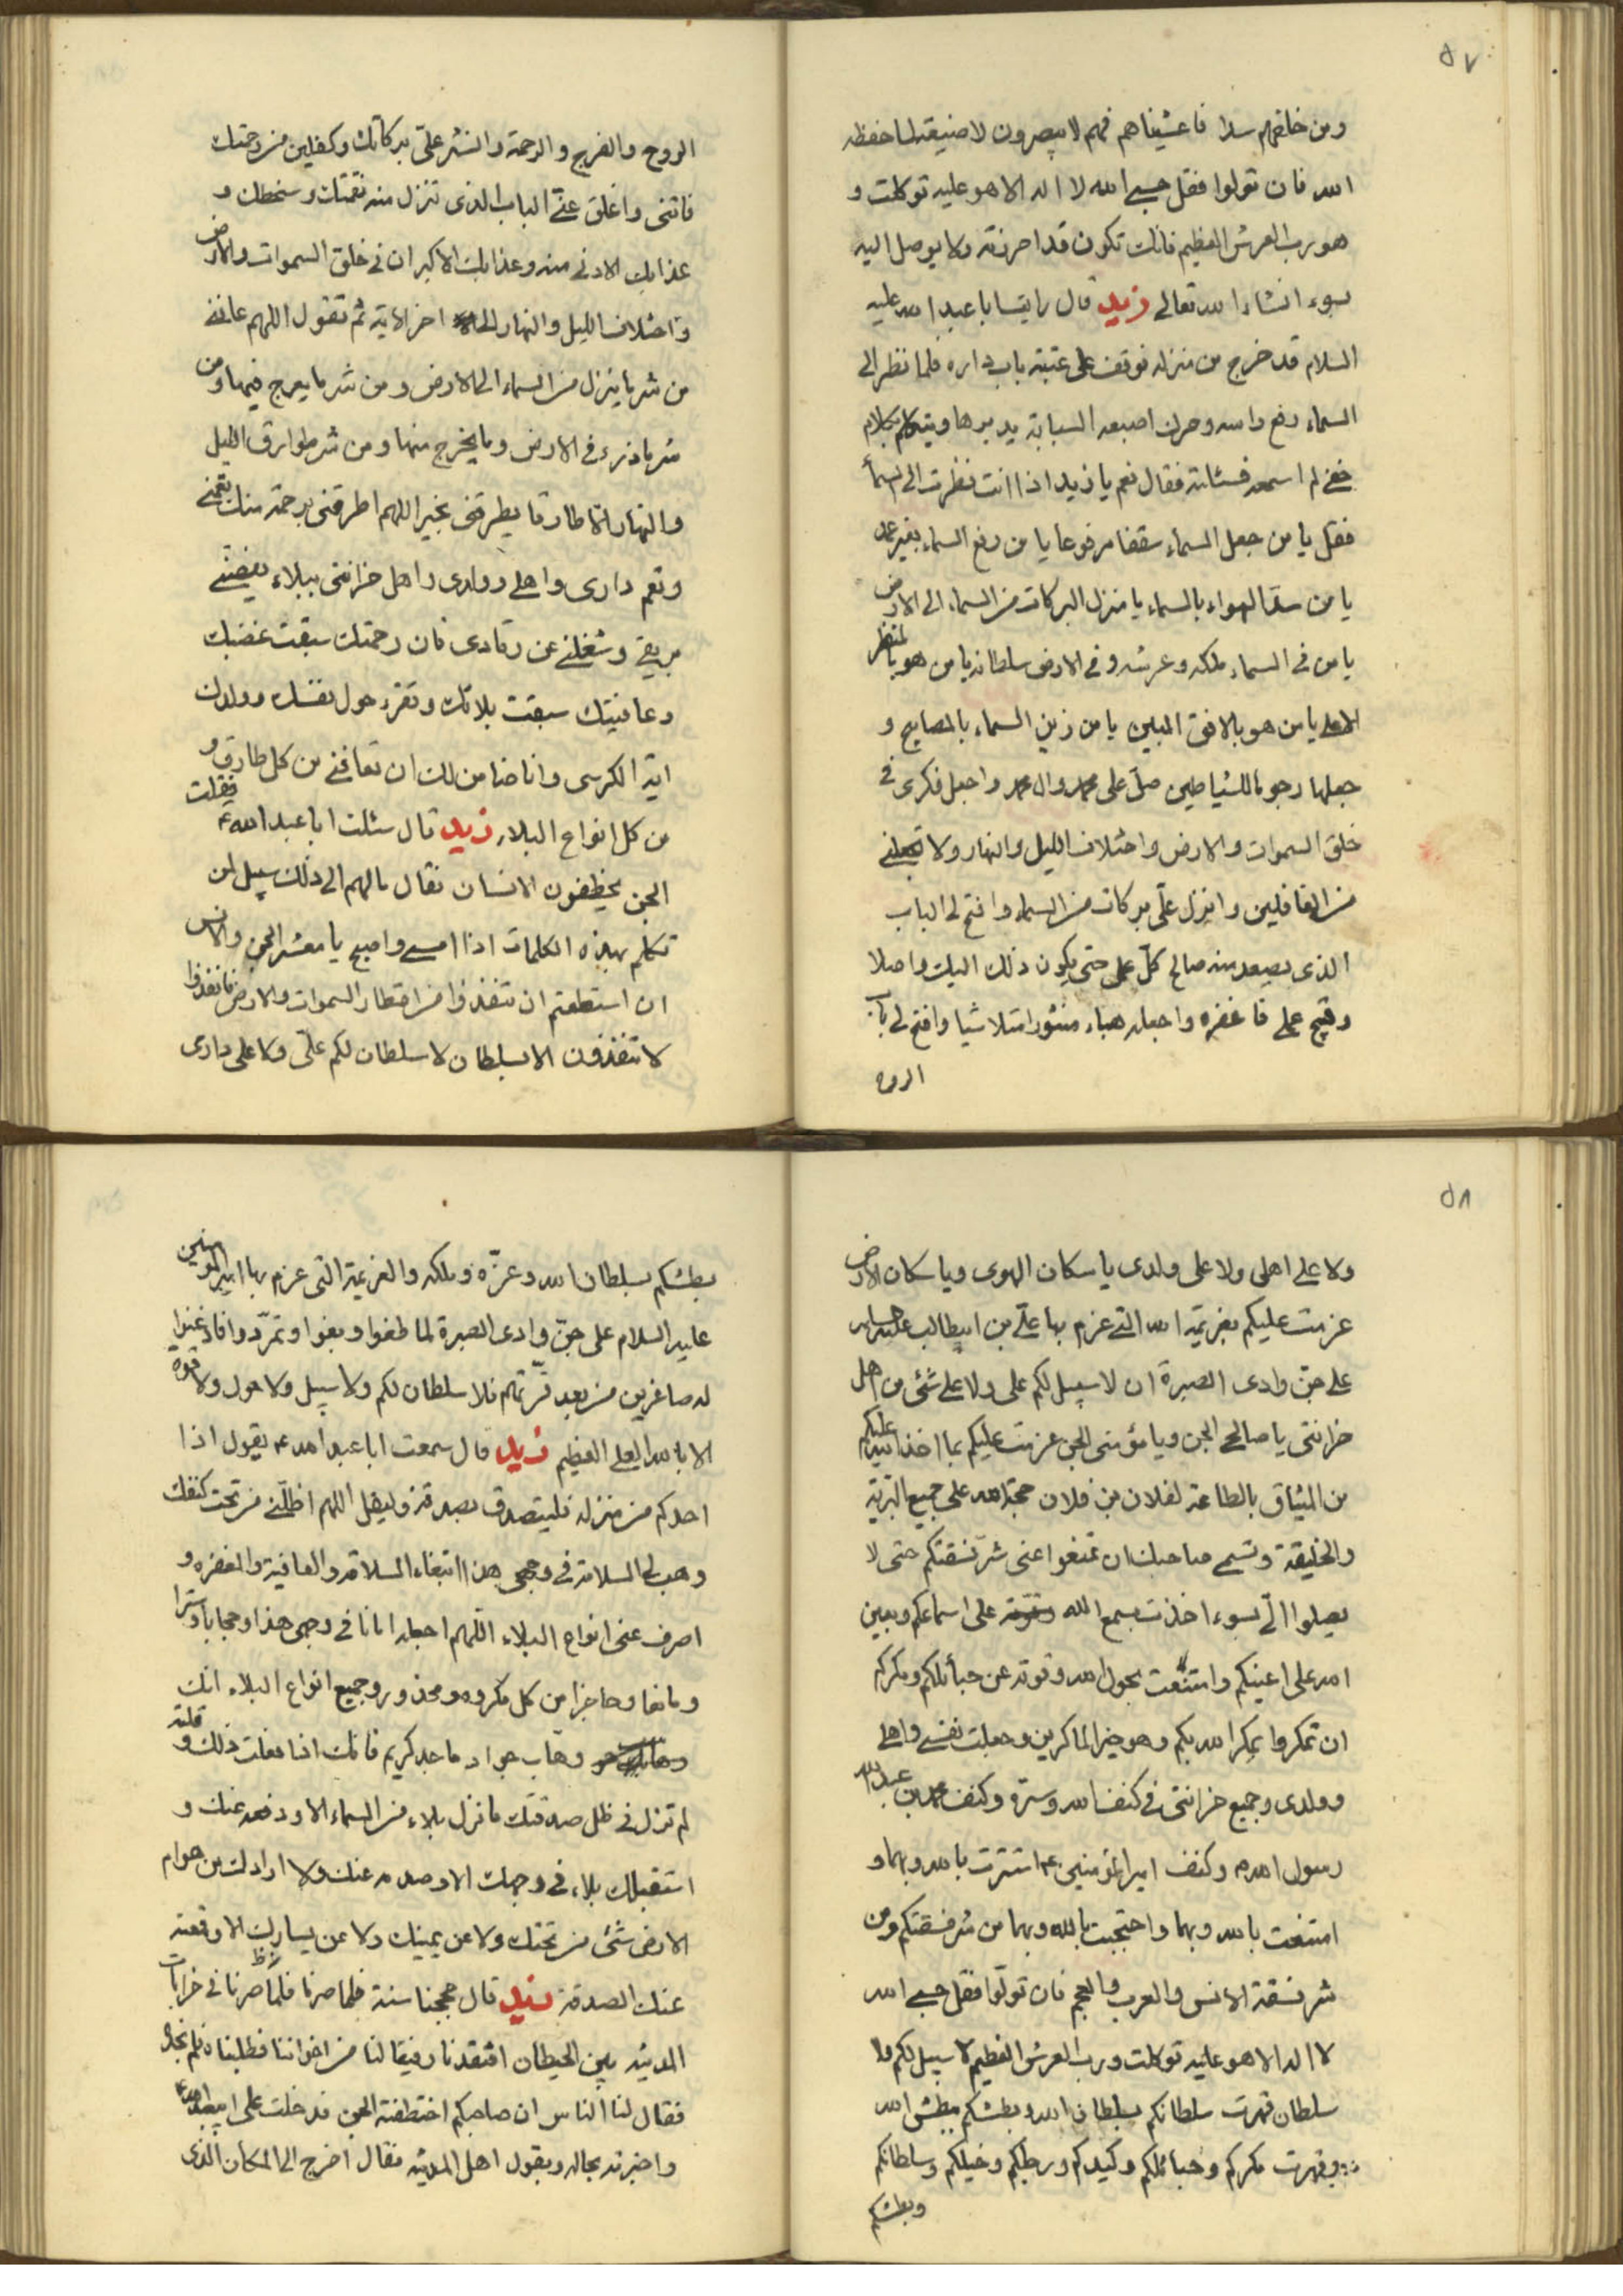 ٥٧
ومن خلفهم سدا فاغشيناهم فهم لا يبصرون لا ضيعة لما حفظه
الله فان تولوا فقل حسبي الله لا اله الا هو عليه توكلت و
هو رب العرش العظيم فانك تكون قد احرزته ولا يوصل اليه
بسوء انشاء الله تعالى زيد قال رايت ابا عبد الله عليه
السلام قد خرج من منزله فوقف على عتبة باب داره فلما نظر الى
السماء رفع راسه وحرك اصبعه السبابة يديرها ويتكلم بكلام
خفي لم اسمعه فسئلته فقال نعم يا زيد اذا انت نظرت الى السماء
فقل يا من جعل السماء سقفا مرفوعا يا من رفع السماء بغير عمد
يا من سد الهواء بالسماء يا منزل البركات من السماء الى الارض
يا من في السماء ملكه وعرشه وفي الارض سلطانه يا من هو بالمنظر
الاعلى يا من هو بالافق المبين يا من زين السماء بالمصابيح و
جعلها رجوما للشياطين صل على محمد وال محمد واجعل فكرى في
خلق السموات والارض واختلاف الليل والنهار ولا تجعلني
من الغافلين وانزل علّي بركات من السماء وافتح لي الباب
الذى يصعد منه صالح كل عمل حتى يكون ذلك اليك واصلا
وقبيح عملي فاغفره واجعله هباء منثورا متلاشيا وافتح لي باب
الروح
الروح والفرج والرحمة وانشر علّي بركاتك وكفلين من رحمتك
فاتنى واغلق عني الباب الذى تنزل منه نقمتك وسخطك و
عذابك الادنى منه وعذابك الاكبر ان في خلق السموات والارض
واختلاف الليل والنهار الى اخر الاية ثم تقول اللهم عافني
من شر ما ينزل من السماء الى الارض ومن شر ما يعرج فيها ومن
شر ما ذرء في الارض وما يخرج منها ومن شر طوارق الليل
والنهار الا طارقا يطرقنى بخير اللهم اطرقنى برحمة منك تعمني
وتعم دارى واهلي وولدى واهل خزانتى ببلاء يغصني
بريقي وشغلني عن رقادى فان رحمتك سبقت غضبك
وعافيتك سبقت بلائك وتقرء حول نفسك وولدك
اية الكرسى وانا ضامن لك ان تعافي من كل طارق و
من كل انواع البلاء زيد قال سئلت ابا عبد الله ع فقلت
الجن يخطفون الانسان فقال ما لهم الى ذلك سبيل لمن
تكلم بهذه الكلمات اذا امسي واصبح يا معشر الجن والانس
ان استطعتم ان تنفذوا من اقطار السموات والارض فانفذوا
لا تنفذون الا بسلطان لا سلطان لكم علّي ولا على دارى
٥٨
ولا على اهلى ولا على ولدى يا سكان الهوى ويا سكان الارض
عزمت عليكم بعزيمة الله التي عزم بها علّي بن ابيطالب عليه السلام
على جن وادى الصبرة ان لا سبيل لكم على ولا على شئ من اهل
خزانتى يا صالحي الجن ويا مؤمنى الجن عزمت عليكم بما اخذ الله عليكم
من الميثاق بالطاعة لفلان بن فلان حجة الله على جميع البرية
والخليقة وتسمي صاحبك ان تمنعوا عنى شر فسقتكم حتى لا
يصلوا الّي بسوء اخذت بسمع الله على اسماعكم وبعين
الله على اعينكم وامتنعت بحول الله وقوته عن حبائلكم ومكركم
ان تمكروا يمكر الله بكم وهو خير الماكرين وجعلت نفسي واهلي
وولدى وجميع خزانتى في كنف الله وستره وكنف محمد بن عبد الله
رسول الله ص وكنف امير المؤمنين ع استترت بالله وبهما و
امتنعت بالله وبهما واحتجبت بالله وبهما من شر فسقتكم ومن
شر فسقة الانس والعرب والعجم فان تولوا فقل حسبي الله
لا اله الا هو عليه توكلت ورب العرش العظيم لا سبيل لكم ولا
سلطان قهرت سلطانكم بسلطان الله وبطشكم ببطش الله
وقهرت مكركم وحبائلكم وكيدكم ورجلكم وخيلكم وسلطانكم
وبطشكم
بطشكم بسلطان الله وعزّه وملكه والعزيمة التى عزم بها امير المؤمنين
عليه السلام على جنّ وادى الصبرة لما طغوا وبغوا وتمرّدوا فاذعنوا
له صاغرين من بعد قوتهم فلا سلطان لكم ولا سبيل ولا حول ولا قوة
الا بالله العلي العظيم زيد قال سمعت ابا عبد الله ع يقول اذا
احدكم من منزله فليتصدق بصدقة وليقل اللهم اظلّني من تحت كنفك
وهب لي السلامة في وجهى هذا ابتغاء السلامة والعافية والمغفرة و
اصرف عنى انواع البلاء اللّهم اجعله امانا في وجهى هذا وحجابا وسترا
ومانعا وحاجزا من كل مكروه ومحذور وجميع انواع البلاء انك
وهاب جواد ماجد كريم فانك اذا فعلت ذلك وقلته
لم تزل في ظل صدقتك ما نزل بلاء من السماء الا ودفعه عنك و
استقبلك بلاء في وجهك الا وصده عنك ولا ارادك من هوام
الارض شئ من تحتك ولا عن يمينك ولا عن يسارك الا وقعته
عنك الصدقة زيد قال حججنا سنة فلما صرنا فلما صرنا في خرابات
المدينة بين الحيطان افتقدنا رفيقا لنا من اخواننا فطلبناه فلم نجده
فقال لنا الناس ان صاحبكم اختطفته الجن فدخلت على ابيعبد الله ع
واخبرته بحاله وبقول اهل المدينة فقال اخرج الى المكان الذى